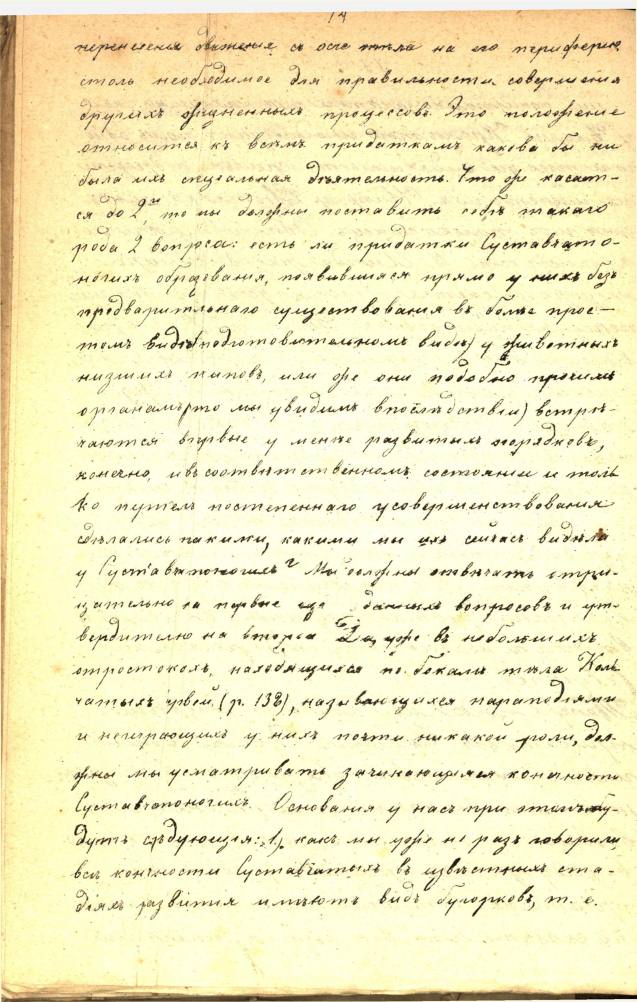 14
перенесенiя движенiя съ оси тѣла на его периферiю
столь необходимое для правильности совершенiя
другихъ жизненныхъ процессовъ. Это положенiе
относится къ всѣмъ придаткамъ какова бы ни
была ихъ спецiальная дѣятельность. Что же касает-
ся до 2го, то мы должны поставить себѣ такаго
рода 2 вопроса: есть ли придатки Суставчато-
ногихъ образованiя, появившiяся прямо у нихъ безъ
предварительнаго существованiя въ болѣе прос-
томъ видѣ (подготовительномъ видѣ) у животныхъ
низшихъ типовъ, или же они подобно прочимъ
органамъ (что мы увидимъ впослѣдствiи) встрѣ-
чаются впервые у менѣе развитыхъ порядковъ,
конечно, и въ соотвѣтственномъ состоянiи и толь
ко путемъ постепеннаго усовершенствованiя
сдѣлались такими, какими мы ихъ сейчасъ видѣли
у Суставчатоногихъ? Мы должны отвѣчать отри-
цательно на первые изъ данныхъ вопросовъ и ут-
вердительно на второй уже въ небольшихъ
отросткахъ, находящихся по бокамъ тѣла Коль
чатыхъ червей (р. 138), называющихся параподiями
и неиграющихъ у нихъ почти никакой роли, дол-
жны мы усматривать зачинающiяся конечности
Суставчатоногихъ. Основанiя у насъ при этомъ бу-
дутъ слѣдующiя: 1) какъ мы уже не разъ говорили,
всѣ конечности Суставчатыхъ въ извѣстныхъ ста-
дiяхъ развитiя имѣютъ видъ бугорковъ, т. е.